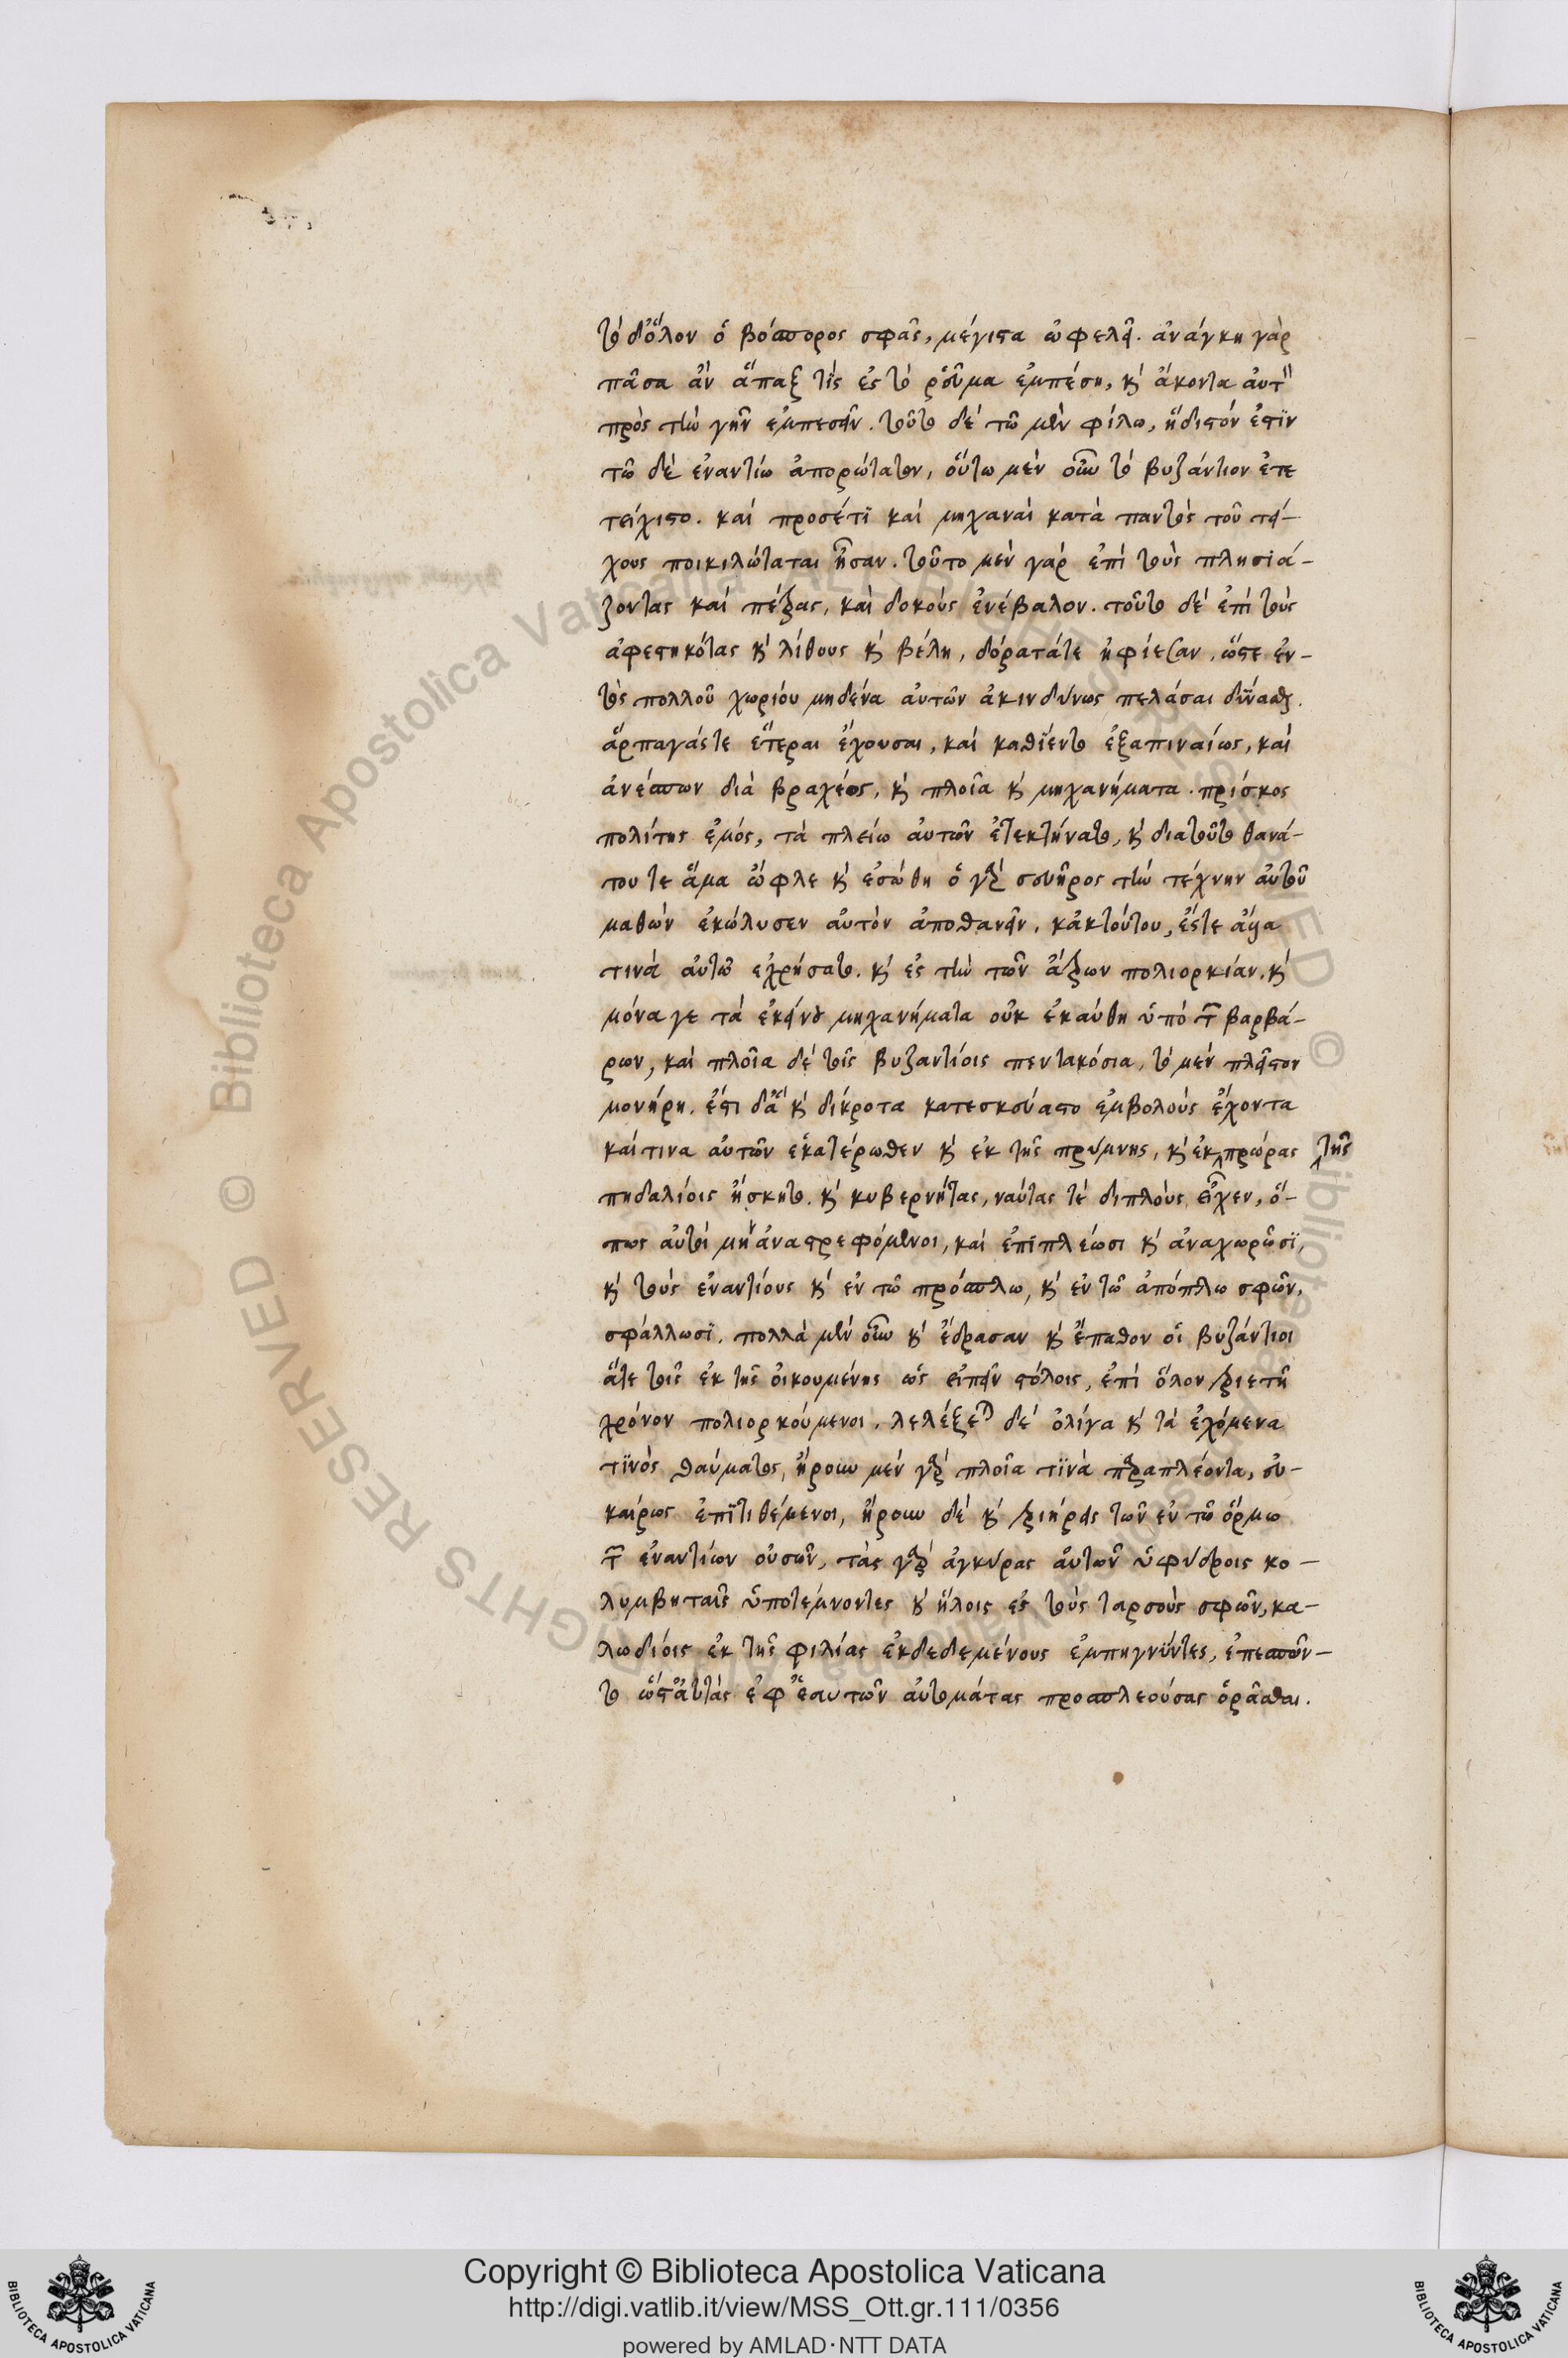 τὸ δ᾽ ὅλον ὁ βόσπορος σφᾶς, μέγιστα ὠφελεῖ. ἀνάγκη γὰρ
πᾶσα ἂν ἅπαξ τὶς ἐς τὸ ῥεῦμα ἐμπέση, κ ἄκοντα αὐτὸν
πρὸς τὴν γῆν ἐμπεσεῖν. τοῦτο δὲ τῶ μὲν φίλω, ἥδιστόν ἐστϊν
τῶ δὲ ἐναντίω ἀπορώτατον, οὕτω μὲν οὖν τὸ βυζάντιον ἐτε
τείχιστο. καὶ προσέτϊ καὶ μηχαναὶ κατὰ παντὸς τοῦ τεί-
χους ποικιλώταται ἦσαν. τοῦτο μὲν γὰρ ἐπὶ τοὺς πλησιά-
ζοντας καὶ πέτρας, καὶ δοκοὺς ἐνέβαλον. τοῦτο δὲ ἐπὶ τοὺς
ἀφεστηκότας κ λίθους κ βέλη, δόρατάτε ἠφίεσαν, ὥστε ἐν-
τὸς πολλοῦ χωρίου μηδένα αὐτῶν ἀκινδύνως πελάσαι δύνασθαι.
ἅρπαγάς τε ἕτεραι ἔχουσαι, καὶ καθΐεντο ἐξαπιναίως, καὶ
ἀνέσπων διὰ βραχέος, κ πλοῖα κ μηχανήματα. πρίσκος
πολίτης ἐμός, τὰ πλείω αὐτῶν ἐτεκτήνατο, κ διατοῦτο θανά-
του τε ἅμα ὦφλε κ ἐσώθη ὁ γὰρ σευῆρος τὴν τέχνην αὐτοῦ
μαθὼν ἐκώλυσεν αὐτὸν ἀποθανεῖν. κἀκτούτου, ἔς τε ἄλλα
τινὰ αὐτῶ ἐχρήσατο. κ ἐς τὴν τῶν ἄτρων πολιορκίαν. κ
μόνα γε τὰ ἐκείνου μηχανήματα οὐκ ἐκαύθη ὑπὸ τῶν βαρβά-
ρων, καὶ πλοῖα δὲ τοῖς βυζαντίοις πεντακόσια, τὸ μὲν πλεῖστον
μονήρη. ἔστι δ᾽ ἃ κ δίκροτα κατεσκεύαστο ἐμβολοὺς ἔχοντα
καίτινα αὐτῶν ἑκατέρωθεν κ ἐκ τῆς πρύμνης, κ ἐκ πρώρας τῆς
πηδαλίοις ἤσκητο. κ κυβερνήτας, ναύτας τὲ διπλοὺς εἶχεν, ὅ-
πως αὐτοὶ μὴ ἀναστρεφόμενοι, καὶ ἐπϊπλέωσι κ ἀναχωρῶσϊ,
κ τοὺς ἐναντίους κ ἐν τῶ πρόσπλω, κ ἐν τῶ ἀπόπλω σφῶν,
σφάλλωσϊ. πολλὰ μὲν οὖν κ ἔδρασαν κ ἔπαθον οἱ βυζάντιοι
ἅτε τοῖς ἐκ τῆς οἰκουμένης ὡς εἰπεῖν στόλοις, ἐπὶ ὅλον τριετῆ
χρόνον πολιορκούμενοι. λελέξεται δὲ ὀλίγα κ τὰ ἐχόμενα
τϊνὸς θαύματος, ἥρουν μὲν γὰρ πλοῖα τϊνὰ παραπλέοντα, εὐ-
καίρως ἐπϊτιθέμενοι, ἥρουν δὲ κ τριήρεις τῶν ἐν τῶ ὅρμω
τῶν ἐναντίων οὐσῶν, τὰς γὰρ ἀγκύρας αὐτῶν ὑφύδροις κο-
λυμβηταῖς ὑποτέμνοντες κ ἥλοις ἐς τοὺς ταρσοὺς σφῶν, κα-
λωδίοις ἐκ τῆς φιλίας ἐκδεδεμένους ἐμπηγνΰντες, ἐπεσπῶν-
το ὥστ᾽ αὐτὰς ἐφ᾽ ἑαυτῶν αὐτομάτας προσπλεούσας ὁρᾶσθαι.
Copyright © Biblioteca Apostolica Vaticana
http://digi.vatlib.it/view/MSS_Ott.gr.111/0356
powered by AMLAD·NTT DATA